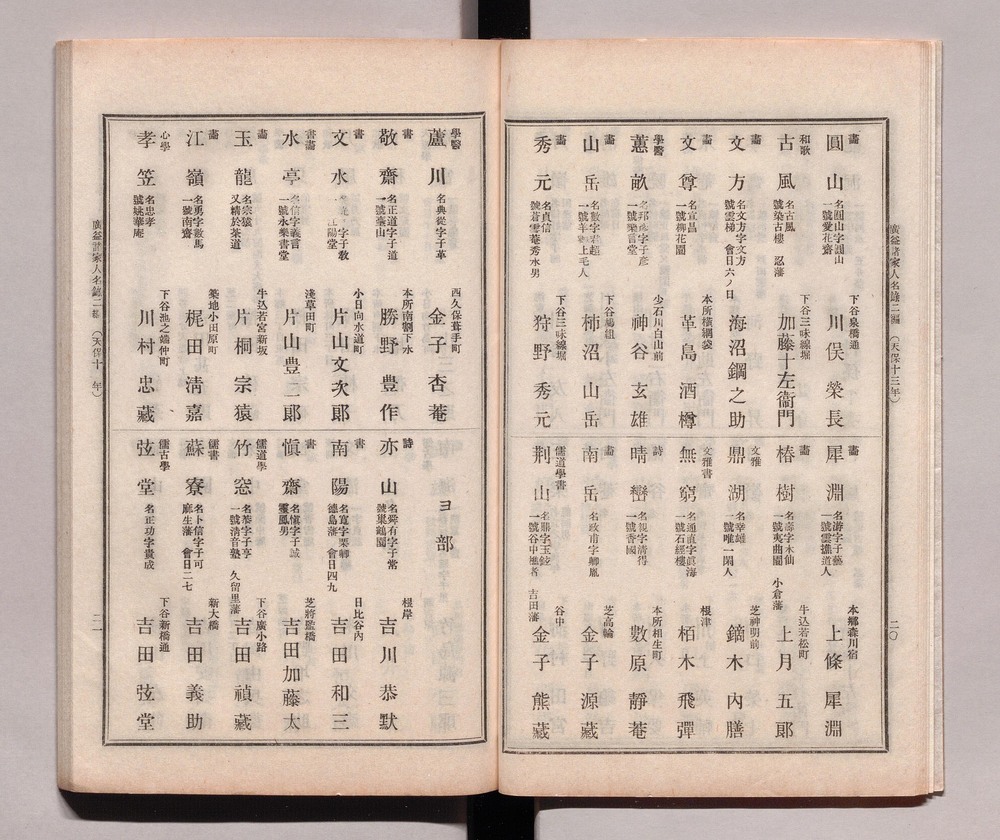 廣益諸家人名錄二編（天保十三年）
二〇
畵
圓山
名圓山字圓山
一號愛花齋
下谷泉橋通
川俣榮長
和歌
古風
名古風
號染古樓
忍藩
下谷三味線堀
加藤十左衞門
畵
文方
名文方字文方
號雲梯 會日六ノ日
海沼鋼之助
畵
文尊
名宣昌
一號柳花園
本所橫綱袋
革島酒樽
學醫
蕙畝
一號樂言堂
少石川白山前
神谷玄雄
畵
山岳
柿沼山岳
畵
秀元
名貞信
號蒼雪菴秀水男
下谷三味線堀
狩野秀元
畵
犀淵
名游字子藝
一號雲攜道人
本鄉森川宿
上條犀淵
畵
椿樹
名壽字木仙
一號夷曲園
小倉藩
牛込若松町
上月五郞
文雅
鼎湖
名幸雄
一號唯一閑人
芝神明前
鏑木內膳
文雅書
無窮
名通直字眞海
一號石經樓
根津
栢木飛彈
詩
晴巒
名親字淸得
一號香國
本所相生町
數原靜菴
畵
南岳
名政甫字卿胤
芝高輪
金子源藏
儒道學書
荆山
名鼎字玉鉉
一號谷中樵者
吉田藩
谷中
金子熊藏
學醫
蘆川
名典從字子革
西久保葺手町
金子杏菴
書
敬齋
名正道字子道
一號臺山
本所南割下水
勝野豊作
書
文水
小日向水道町
片山文次郞
書畵
水亭
名信字義言
一號永樂書堂
淺草田町
片山豊二郞
畵
玉龍
名宗猿
又精於茶道
牛込若宮新坂
片桐宗猿
畵
江嶺
名勇字數馬
一號南齋
築地小田原町
梶田淸嘉
心學
孝笠
名忠孝
號姚華庵
下谷池之端仲町
川村忠藏
ヨ部
詩
亦山
名舜有字子常
號巢鶴園
根岸
吉川恭默
書
南陽
名寬字栗卿
德島藩 會日四九
日比谷內
吉田和三
書
愼齋
名愼字子誠
靈鳳男
芝將監橋
吉田加藤太
儒道學
竹窓
名恭字子亨
一號淸音塾
久留里藩
下谷廣小路
吉田禎藏
儒書
蘇寮
名卜信字子可
麻生藩 會日二七
新大橋
吉田義助
儒古學
弦堂
名正功字貴成
下谷新橋通
吉田弦堂
廣益諸家人名錄二編（天保十三年）
二一